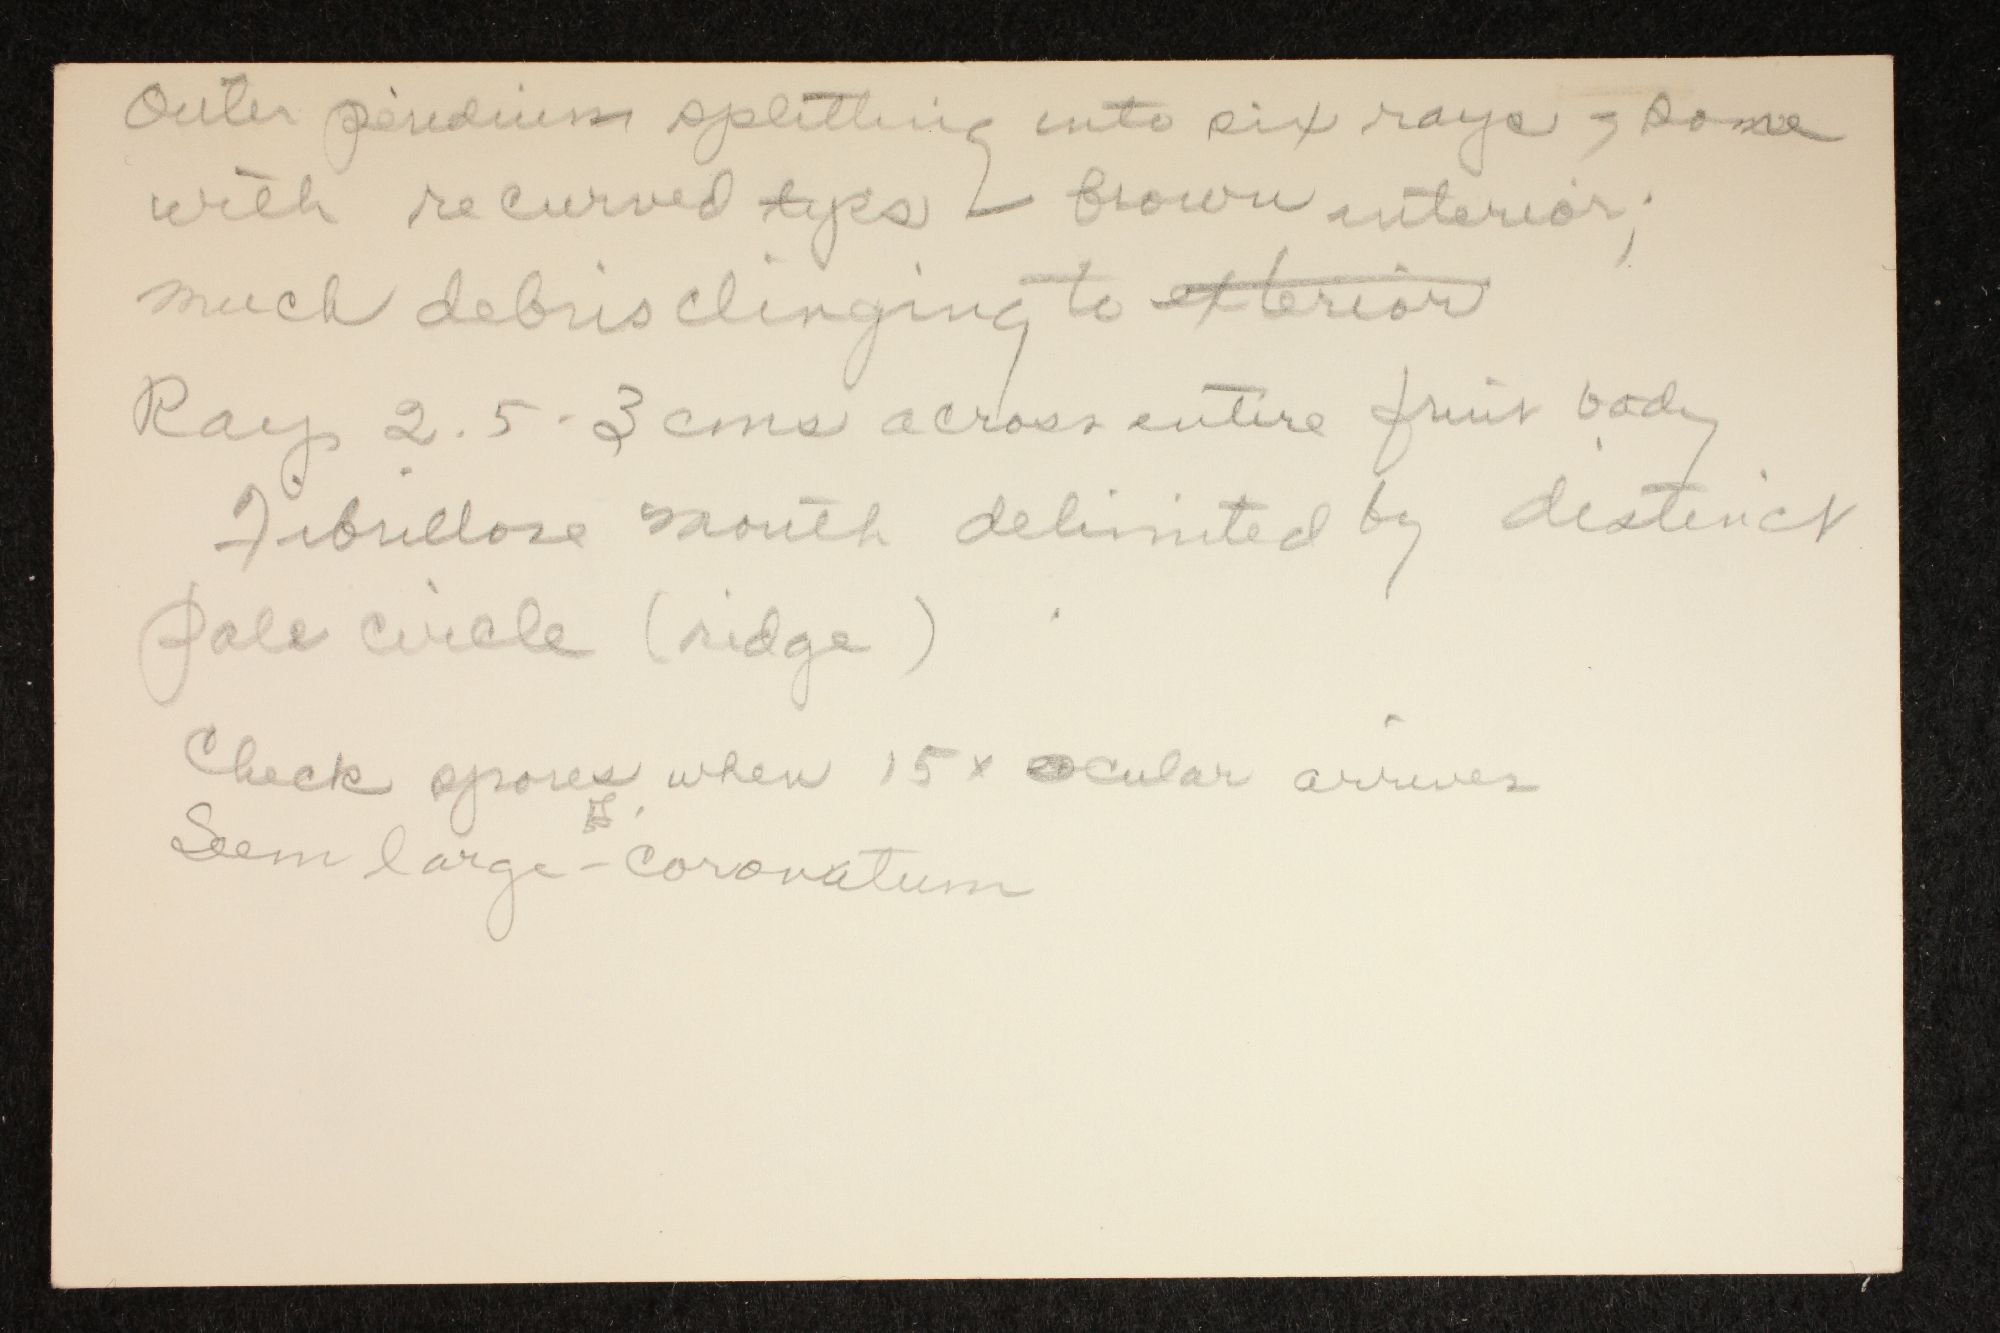 Outer peridium splitting into six rays, some
with recurved tips & brown interior;
much debris clinging to exterior
Rays 2.5-3 cms across entire fruit body
Fibrillose mouth delimited by distinct
pale circle (ridge)
Check spores when 15x ocular arrives
Seem large - coronatum